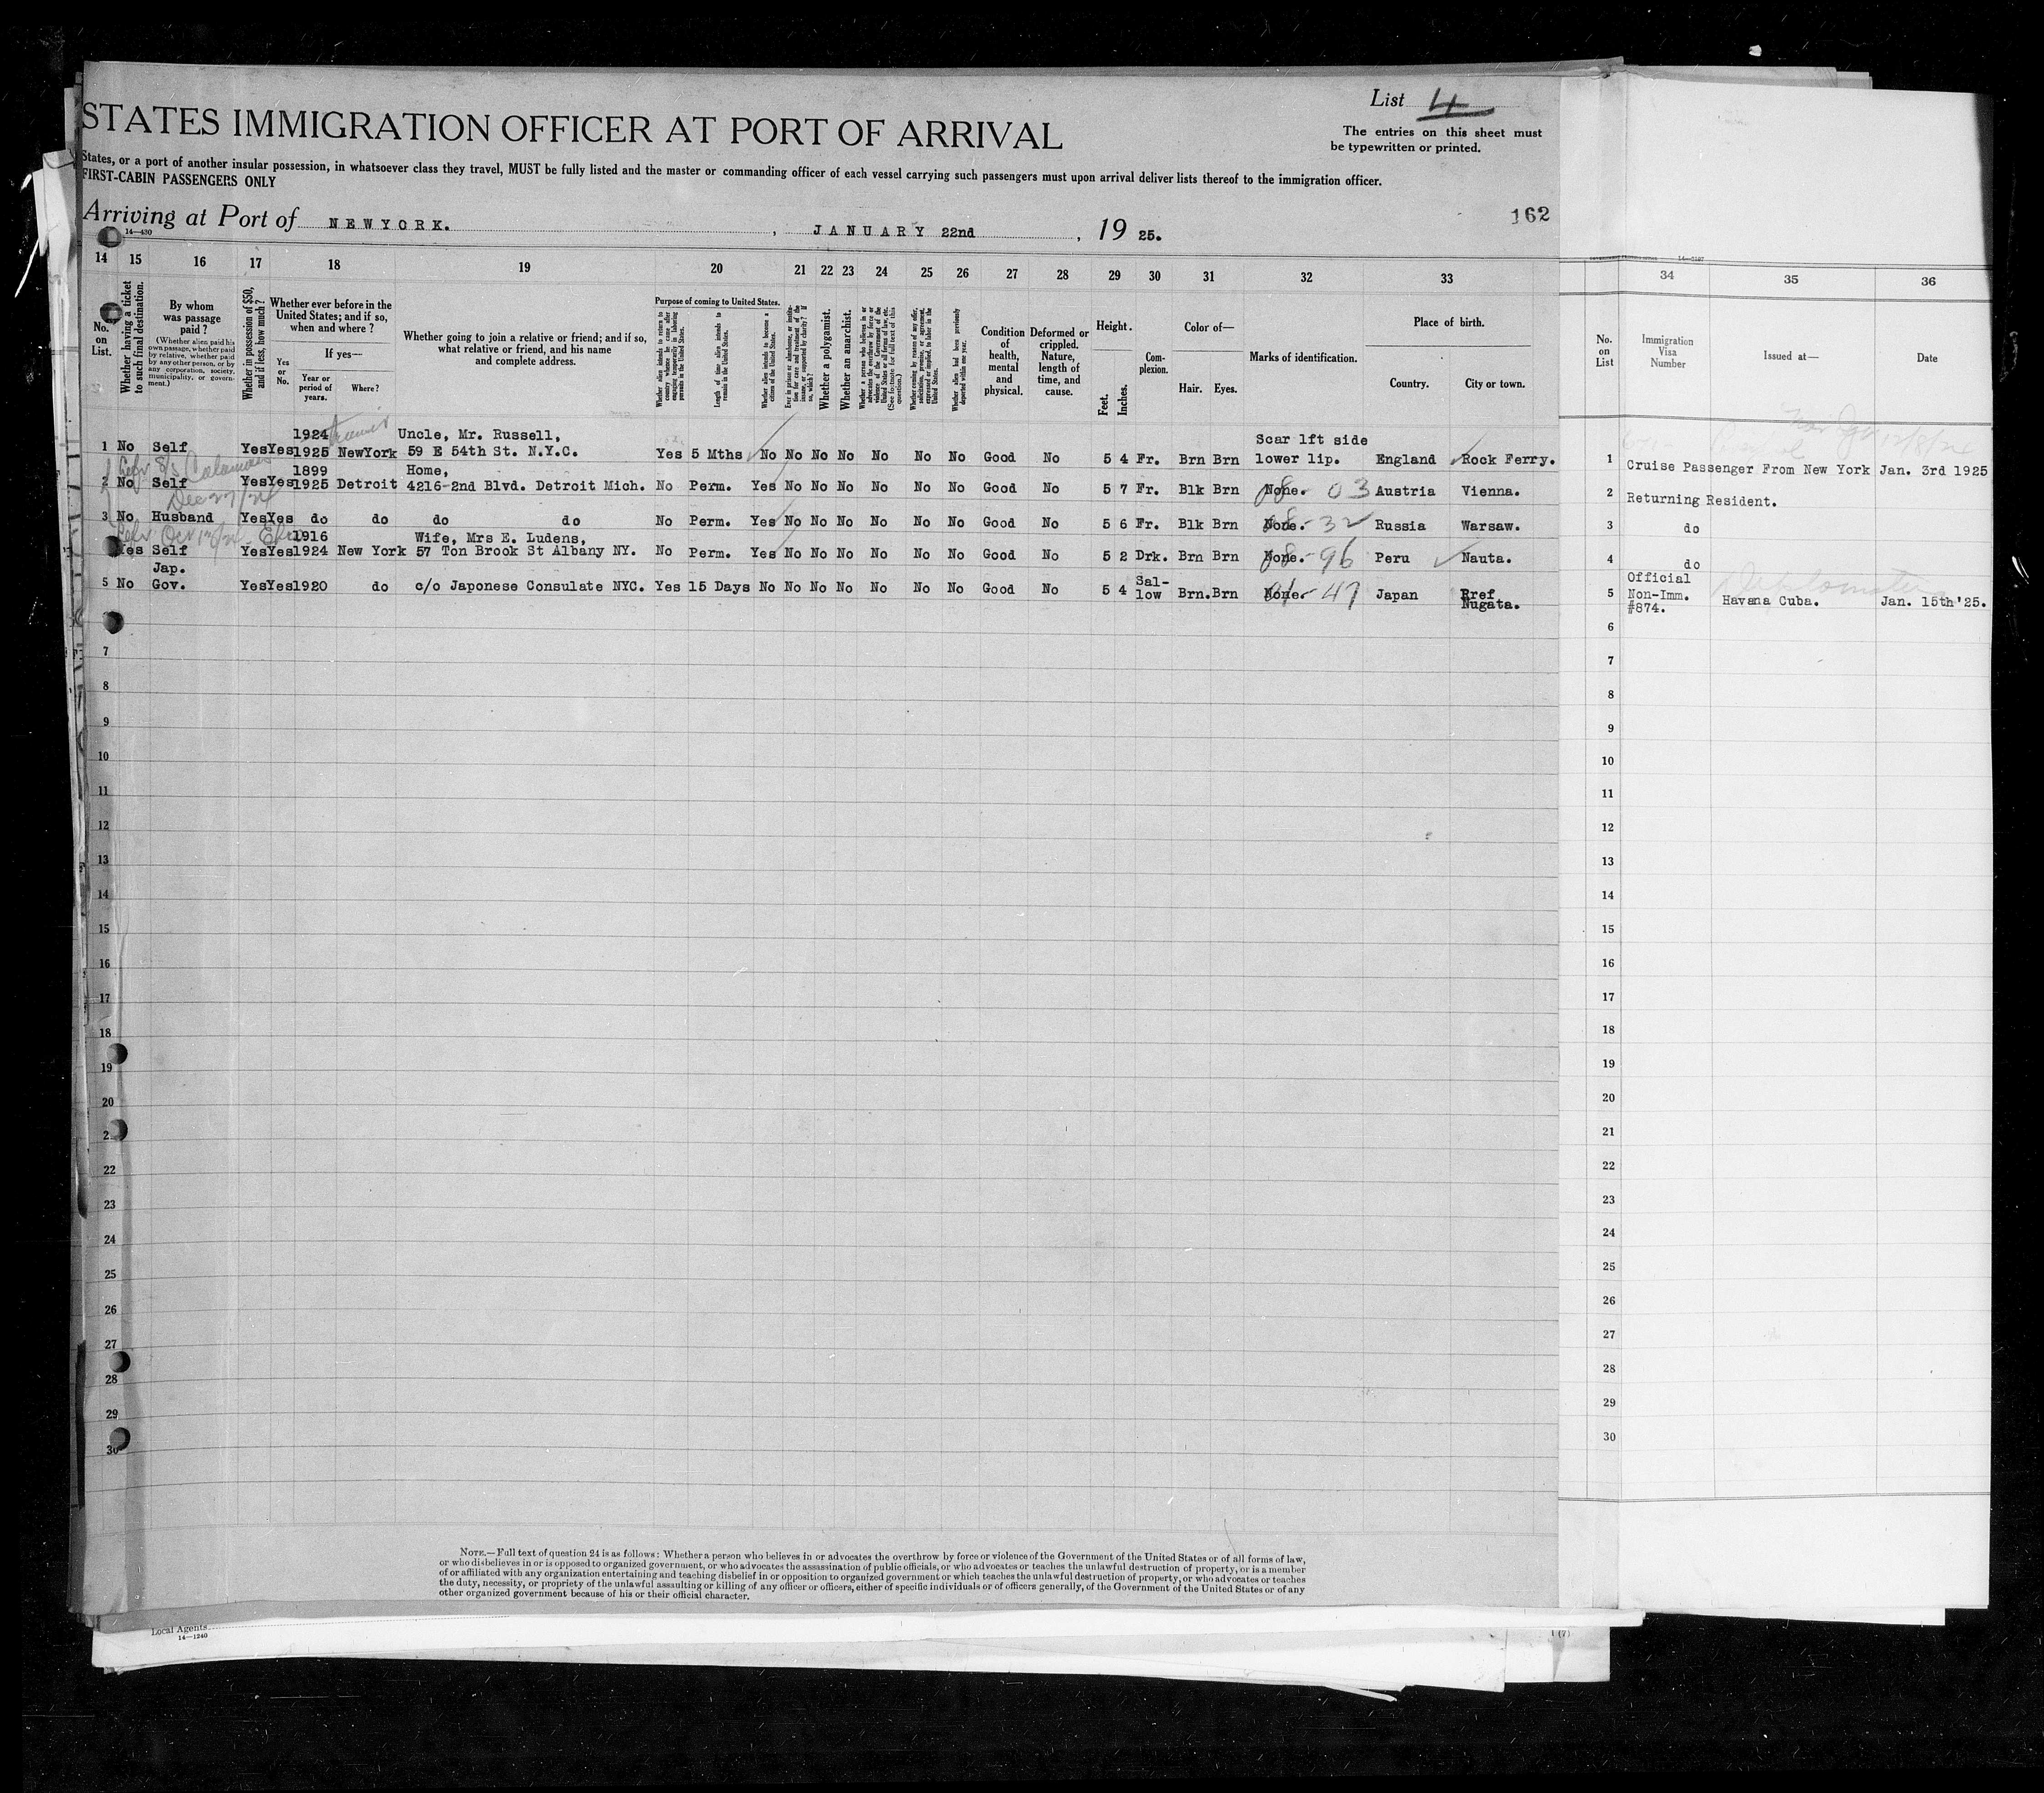 List 4
STATES IMMIGRATION OFFICER AT PORT OF ARRIVAL
The entries on this sheet must
be typewritten or printed.
States, or a port of another insular possession, in whatsoever class they travel, MUST be fully listed and the master or commanding officer of each vessel carrying such passengers must upon arrival deliver lists thereof to the immigration officer.
FIRST-CABIN PASSENGERS ONLY
Arriving at Port of NEWYORK. , JANUARY 22nd , 19 25.
162
14—430
14 15 16 17 18 19 20 21 22 23 24 25 26 27 28 29 30 31 32 33 34 35 36
No. on List.
Whether having a ticket to such final destination.
By whom was passage paid?
(Whether alien paid his own passage, whether paid by relative, whether paid by any other person, or by any corporation, society, municipality, or government.)
Whether in possession of $50, and if less, how much?
Whether ever before in the United States; and if so, when and where?
If yes—
Yes or No.
Year or period of years.
Where?
Whether going to join a relative or friend; and if so, what relative or friend, and his name and complete address.
Purpose of coming to United States.
Whether alien intends to return to country whence he came after engaging temporarily in laboring pursuits in the United States.
Length of time alien intends to remain in the United States.
Whether alien intends to become a citizen of the United States.
Ever in prison or almshouse, or institution for care and treatment of the insane, or supported by charity? If so, which?
Whether a polygamist.
Whether an anarchist.
Whether a person who believes in or advocates the overthrow by force or violence of the Government of the United States or all forms of law, etc. (See footnote for full text of this question.)
Whether coming by reason of any offer, solicitation, promise, or agreement, expressed or implied, to labor in the United States.
Whether alien had been previously deported within one year.
Condition of health, mental and physical.
Deformed or crippled. Nature, length of time, and cause.
Height.
Feet. Inches.
Complexion.
Color of—
Hair. Eyes.
Marks of identification.
Place of birth.
Country. City or town.
No. on List
Immigration Visa Number
Issued at—
Date
1924 Uncle, Mr. Russell, Scar lft side
1 No Self Yes Yes 1925 NewYork 59 E 54th St. N.Y.C. Yes 5 Mths No No No No No No No Good No 5 4 Fr. Brn Brn lower lip. England Rock Ferry. 1 Cruise Passenger From New York Jan. 3rd 1925
1899 Home,
2 No Self Yes Yes 1925 Detroit 4216-2nd Blvd. Detroit Mich. No Perm. Yes No No No No No No Good No 5 7 Fr. Blk Brn None. 03 Austria Vienna. 2 Returning Resident.
Dec 27/24
3 No Husband Yes Yes do do do do No Perm. Yes No No No No No No Good No 5 6 Fr. Blk Brn None. 32 Russia Warsaw. 3 do
1916 Wife, Mrs E. Ludens,
Yes Self Yes Yes 1924 New York 57 Ton Brook St Albany NY. No Perm. Yes No No No No No No Good No 5 2 Drk. Brn Brn None. 96 Peru Nauta. 4 do
Jap. Sal- Official
5 No Gov. Yes Yes 1920 do c/o Japonese Consulate NYC. Yes 15 Days No No No No No No No Good No 5 4 low Brn. Brn None. 47 Japan Pref Nugata. 5 Non-Imm. #874. Havana Cuba. Jan. 15th '25.
6
7 7
8 8
9 9
10 10
11 11
12 12
13 13
14 14
15 15
16 16
17 17
18 18
19 19
20 20
2 21
22 22
23 23
24 24
25 25
26 26
27 27
28 28
29 29
30 30
NOTE.—Full text of question 24 is as follows: Whether a person who believes in or advocates the overthrow by force or violence of the Government of the United States or of all forms of law,
or who disbelieves in or is opposed to organized government, or who advocates the assassination of public officials, or who advocates or teaches the unlawful destruction of property, or is a member
of or affiliated with any organization entertaining and teaching disbelief in or opposition to organized government or which teaches the unlawful destruction of property, or who advocates or teaches
the duty, necessity, or propriety of the unlawful assaulting or killing of any officer or officers, either of specific individuals or of officers generally, of the Government of the United States or of any
other organized government because of his or their official character.
Local Agents
14—1240
1 (7)